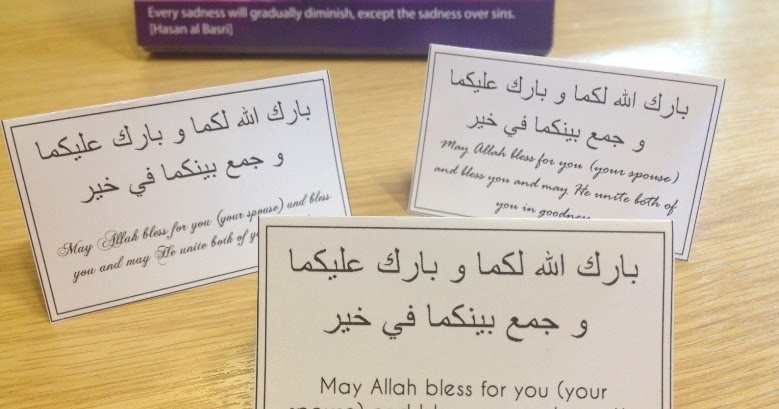 Every sadness will gradually diminish, except the sadness over sins.
[Hasan al Basri]
بارك الله لكما و بارك عليكما
و جمع بينكما في خير
May Allah bless for you (your spouse) and bless
you and may He unite both of
بارك الله لكما و بارك عليكما
و جمع بينكما في خير
May Allah bless for you (your spouse)
and bless you and may He unite both of
you in goodness
بارك الله لكما و بارك عليكما
و جمع بينكما في خير
May Allah bless for you (your